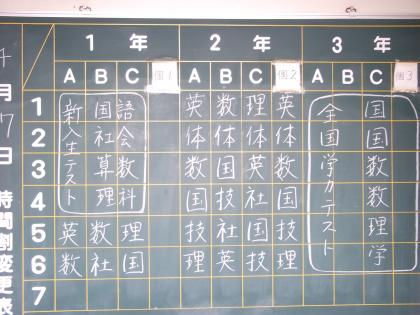 1年 2年 3年
A B C 個1 A B C 個2 A B C 個3
1 国語 英 数 理 英 国
2 社会 体 体 体 体 国
3 算数 数 国 英 数 数
4 理科 国 技 社 国 数
5 英 数 理 技 社 国 技 理
6 数 社 国 理 英 技 理 学
7
新入生テスト
全国学力テスト
月
日
時間割変更表